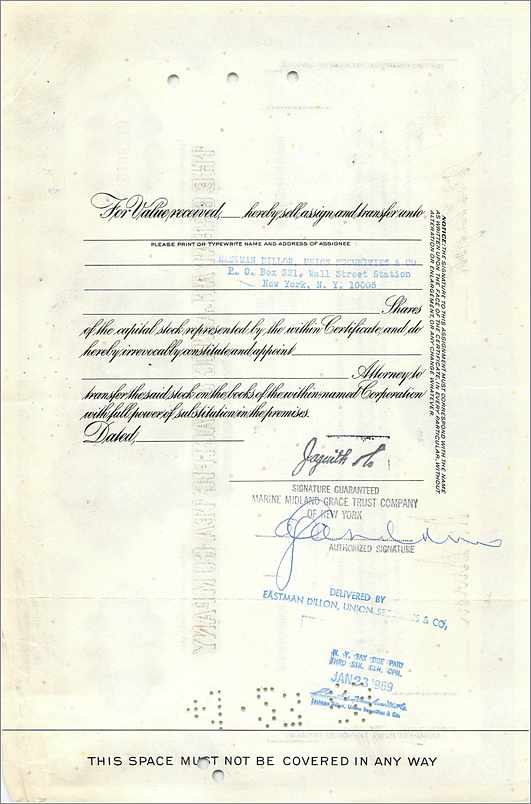 For Value received, ___ hereby sell, assign and transfer unto
PLEASE PRINT OR TYPEWRITE NAME AND ADDRESS OF ASSIGNEE
EASTMAN DILLON, UNION SECURITIES & CO.
P. O. Box 221, Wall Street Station
New York, N. Y. 10005
Shares
of the capital stock represented by the within Certificate and do
hereby irrevocably constitute and appoint
Attorney to
transfer the said stock on the books of the within-named Corporation
with full power of substitution in the premises.
Dated,
NOTICE: THE SIGNATURE TO THIS ASSIGNMENT MUST CORRESPOND WITH THE NAME
AS WRITTEN UPON THE FACE OF THE CERTIFICATE, IN EVERY PARTICULAR, WITHOUT
ALTERATION OR ENLARGEMENT, OR ANY CHANGE WHATEVER.
SIGNATURE GUARANTEED
MARINE MIDLAND GRACE TRUST COMPANY
OF NEW YORK
AUTHORIZED SIGNATURE
DELIVERED BY
EASTMAN DILLON, UNION SECURITIES & CO.
N. Y. TAX DUE PAID
THRU STK. CLR. CPN.
JAN 23 1969
Eastman Dillon, Union Securities & Co.
THIS SPACE MUST NOT BE COVERED IN ANY WAY